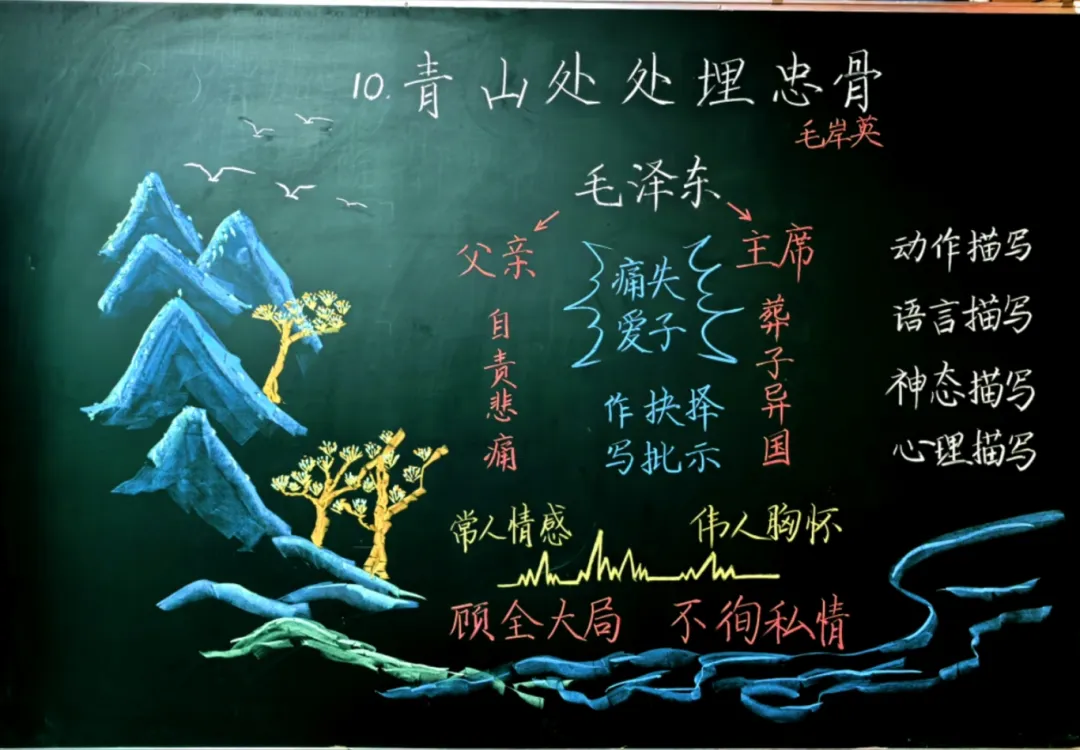 10.青山处处埋忠骨
毛岸英
毛泽东
父亲
主席
痛失
爱子
自责悲痛
葬子异国
作抉择
写批示
动作描写
语言描写
神态描写
心理描写
常人情感
伟人胸怀
顾全大局 不徇私情